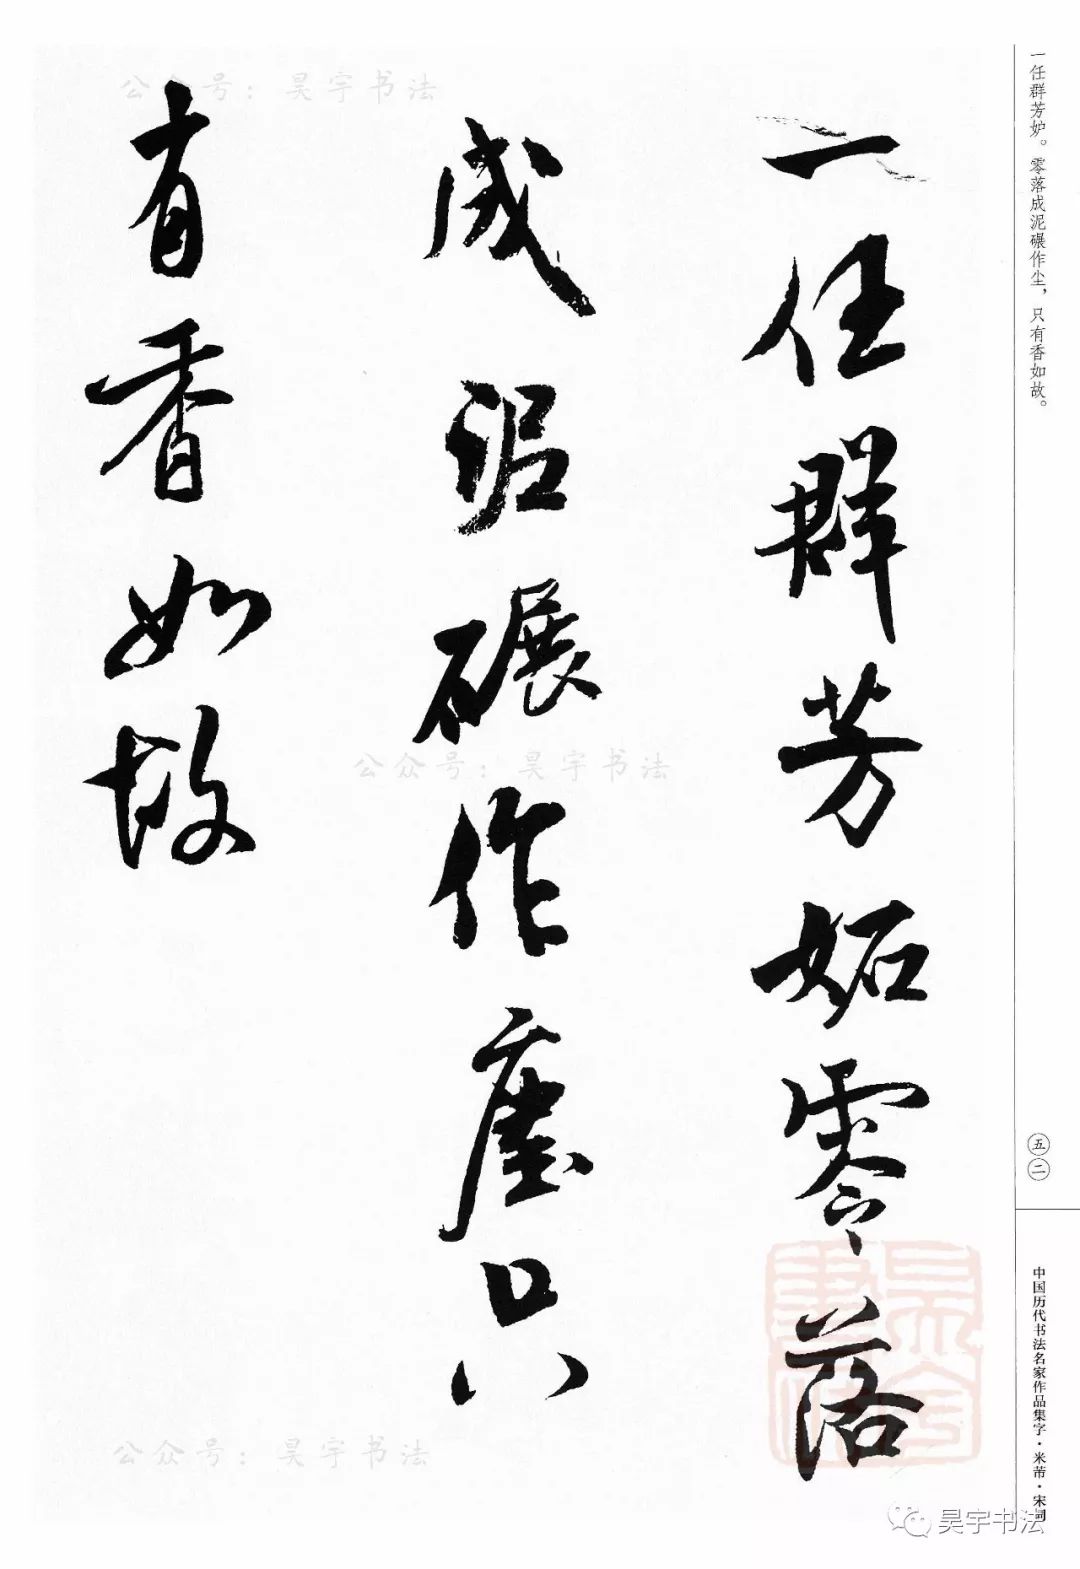 一任群芳妒。零落成泥碾作尘，只有香如故。
五二
中国历代书法名家作品集字·米芾·宋词
一任群芳妬零落
成泥碾作塵只
有香如故
公众号：昊宇书法
公众号：昊宇书法
公众号：昊宇书法
昊宇书法